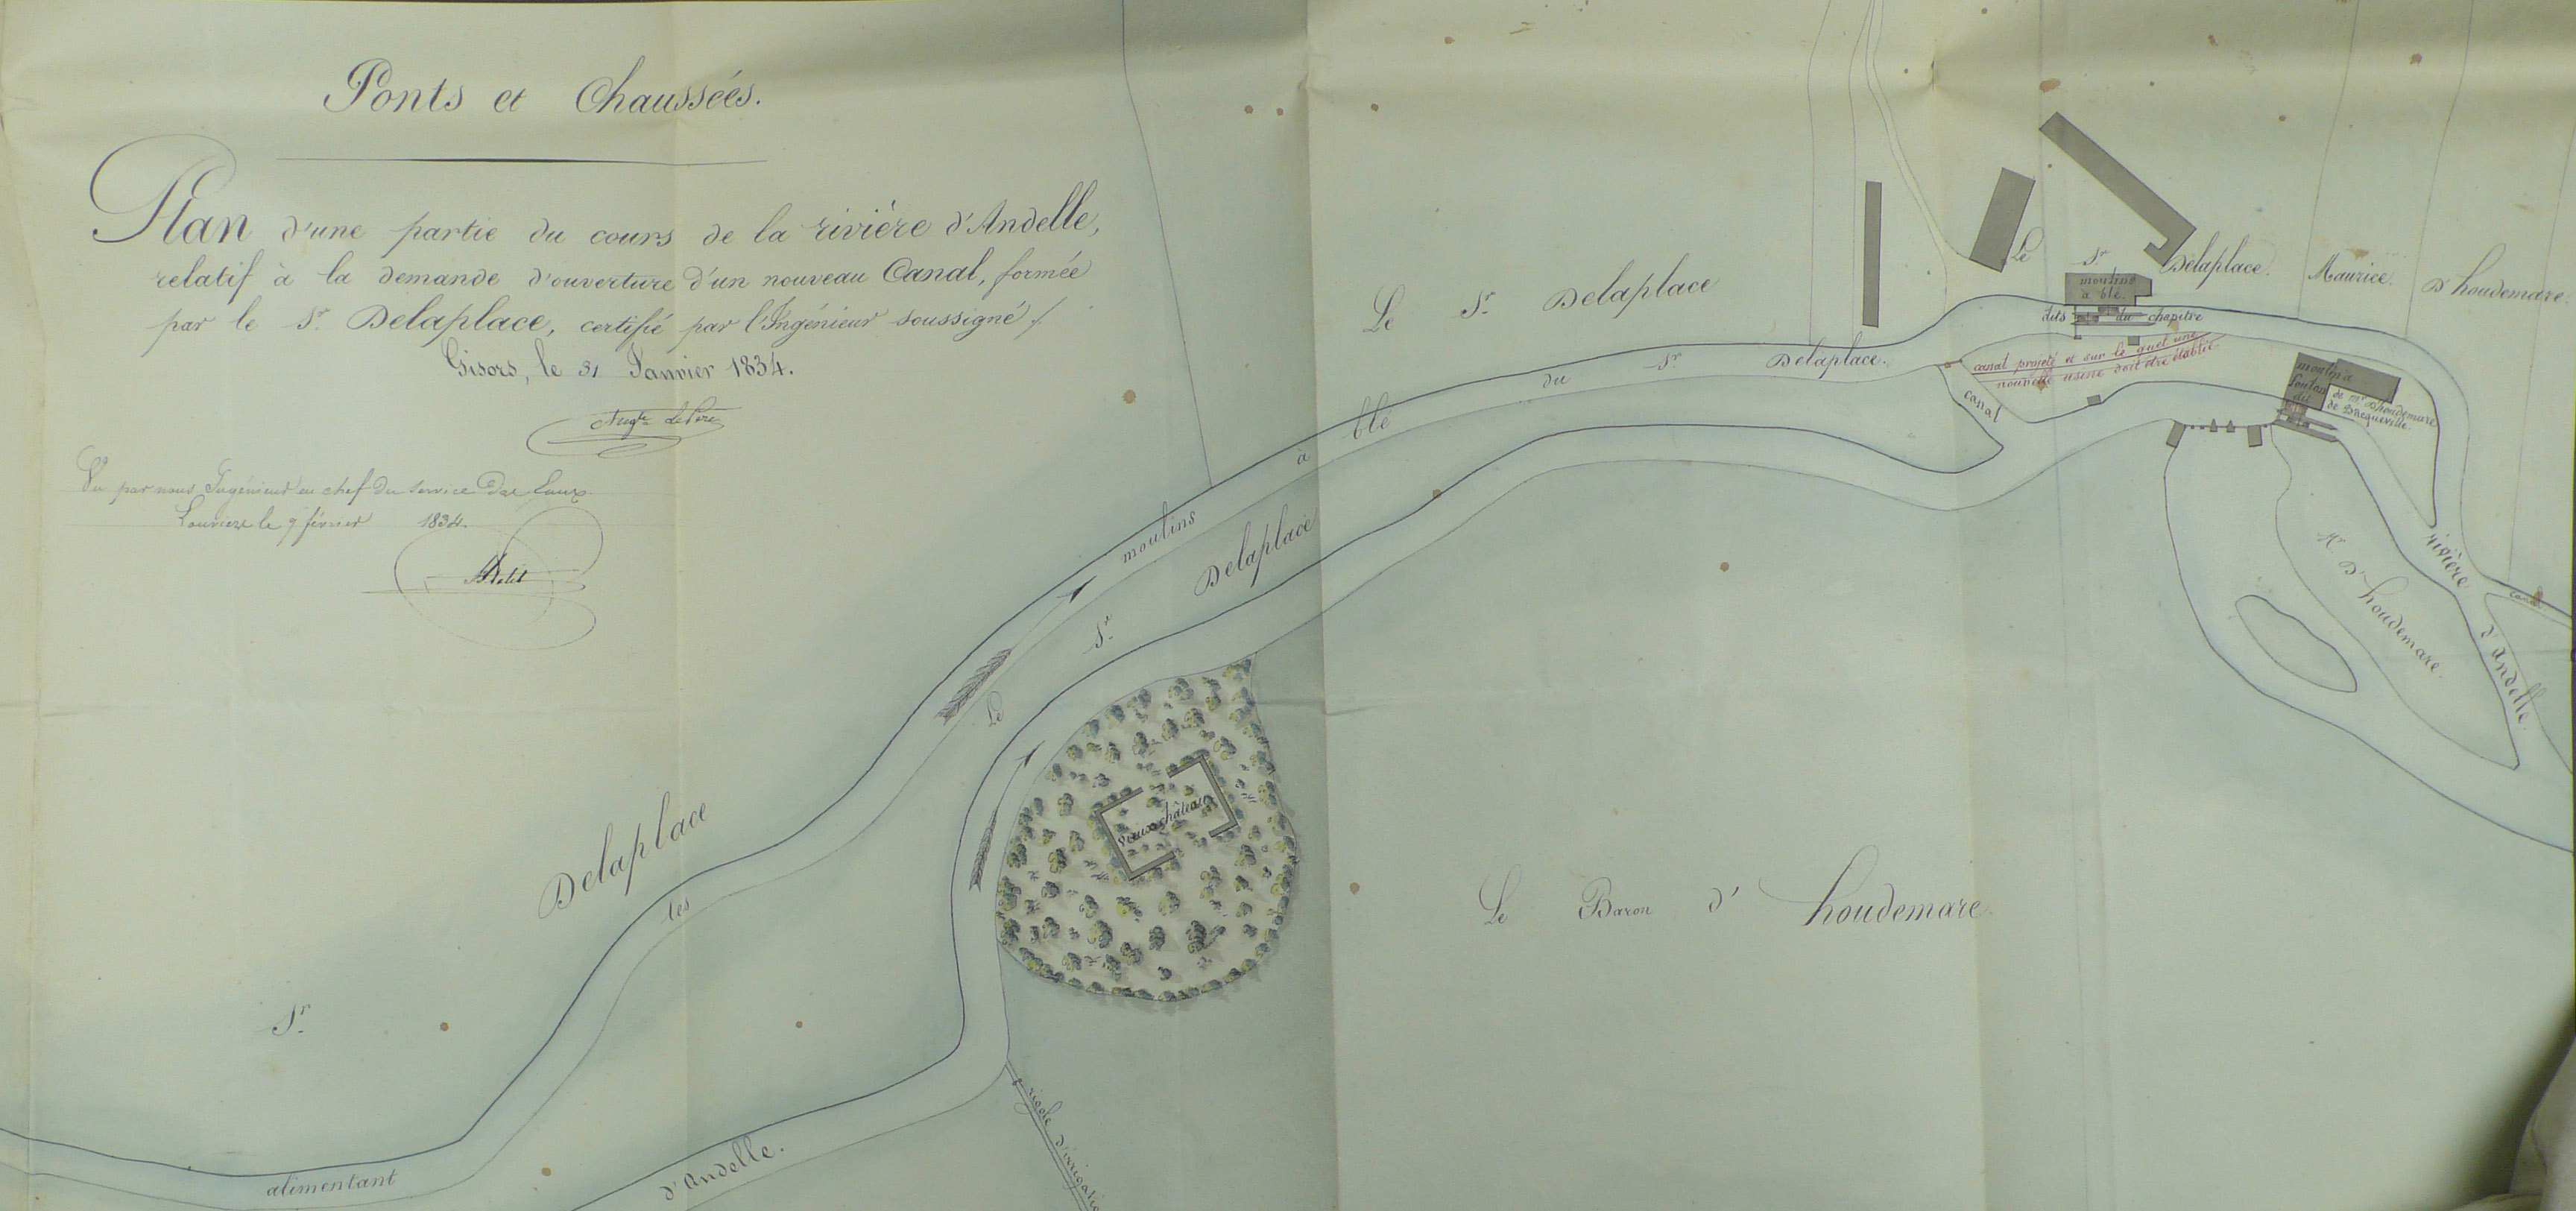 Ponts et Chaussées.
Plan d'une partie du cours de la rivière d'Andelle,
relatif à la demande d'ouverture d'un nouveau Canal, formée
par le Sr. Delaplace, certifié par l'Ingénieur soussigné /.
Gisors, le 31 Janvier 1834.
Vu par nous Ingénieur en chef du service des Eaux.
Louviers le 9 février 1834.
Le Sr. Delaplace
Le Sr. Delaplace.
Maurice.
D'houdemare.
moulins
à blé.
dits du chapitre
canal projeté et sur le quel une
nouvelle usine doit être établie.
canal
moulin à
foulon
dit
de Mr. D'houdemare
de Bacqueville.
alimentant les moulins à blé du Sr. Delaplace.
Le Sr. Delaplace
Sr. Delaplace
vieux château
Mr. D'houdemare.
rivière d'Andelle.
canal
Le Baron d'houdemare.
d'Andelle.
rigole d'irrigatio